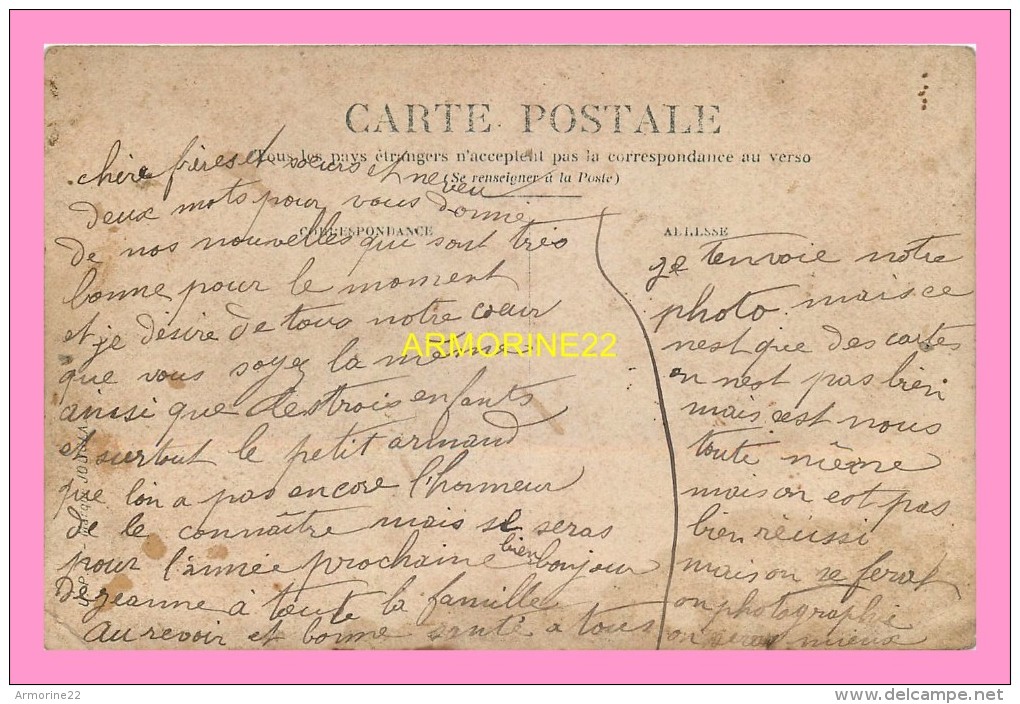 CARTE POSTALE
Tous les pays étrangers n'acceptent pas la correspondance au verso
(Se renseigner à la Poste)
CORRESPONDANCE
ADRESSE
chère frères et soeurs et neveu
deux mots pour vous donné
de nos nouvelles qui sont très
bonne pour le moment
et je désire de tous notre coeur
que vous soyez la même
ainsi que les trois enfants
et surtout le petit armand
que lon a pas encore l'honneur
de le connaître mais se seras
pour l'année prochaine bien bonjour
de jeanne à toute la famille
au revoir et bonne santé a tous
je tenvoie notre
photo mais ce
nest que des cartes
on nest pas bien
mais cest nous
toute même
mais on est pas
bien réussi
mais on se ferat
on photographié
on seras mieux
ARMORINE22
Armorine22
www.delcampe.net